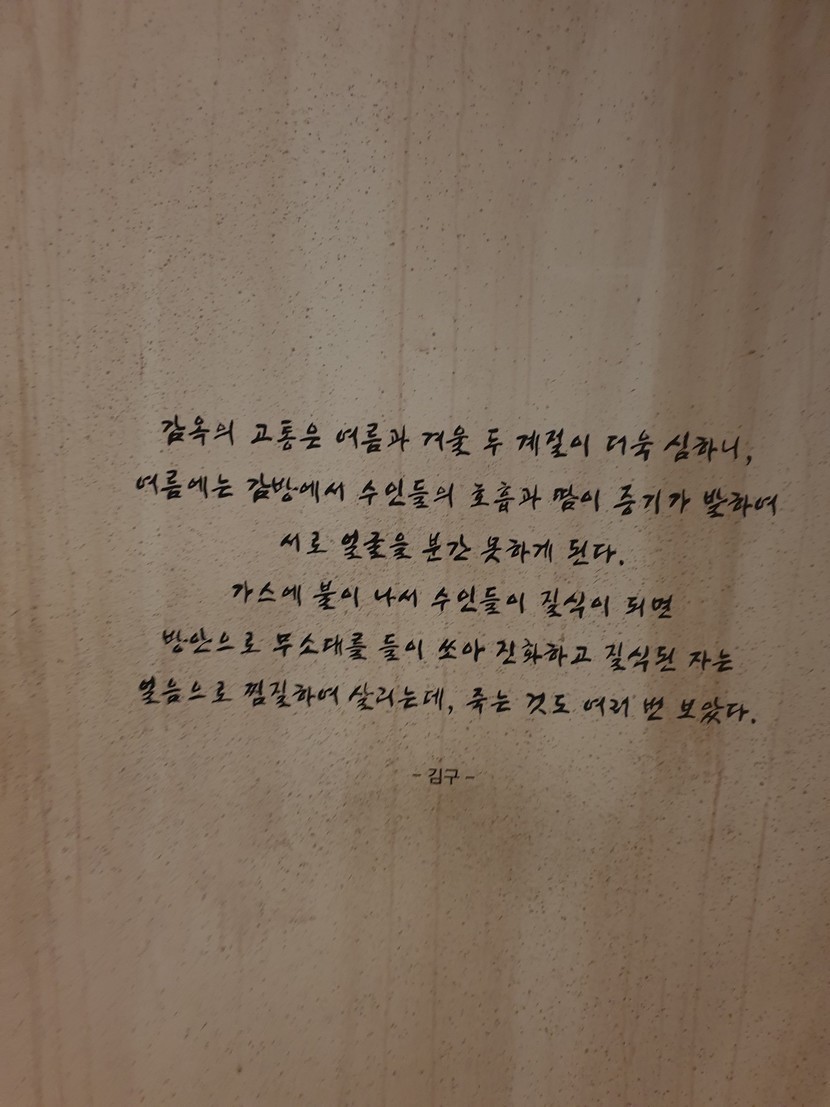 감옥의 고통은 여름과 겨울 두 계절이 더욱 심하니,
여름에는 감방에서 수인들의 호흡과 땀이 증기가 발하여
서로 얼굴을 분간 못하게 된다.
가스에 불이 나서 수인들이 질식이 되면
방안으로 무소대를 들이 쏘아 진화하고 질식된 자는
얼음으로 찜질하여 살리는데, 죽는 것도 여러 번 보았다.
- 김구 -